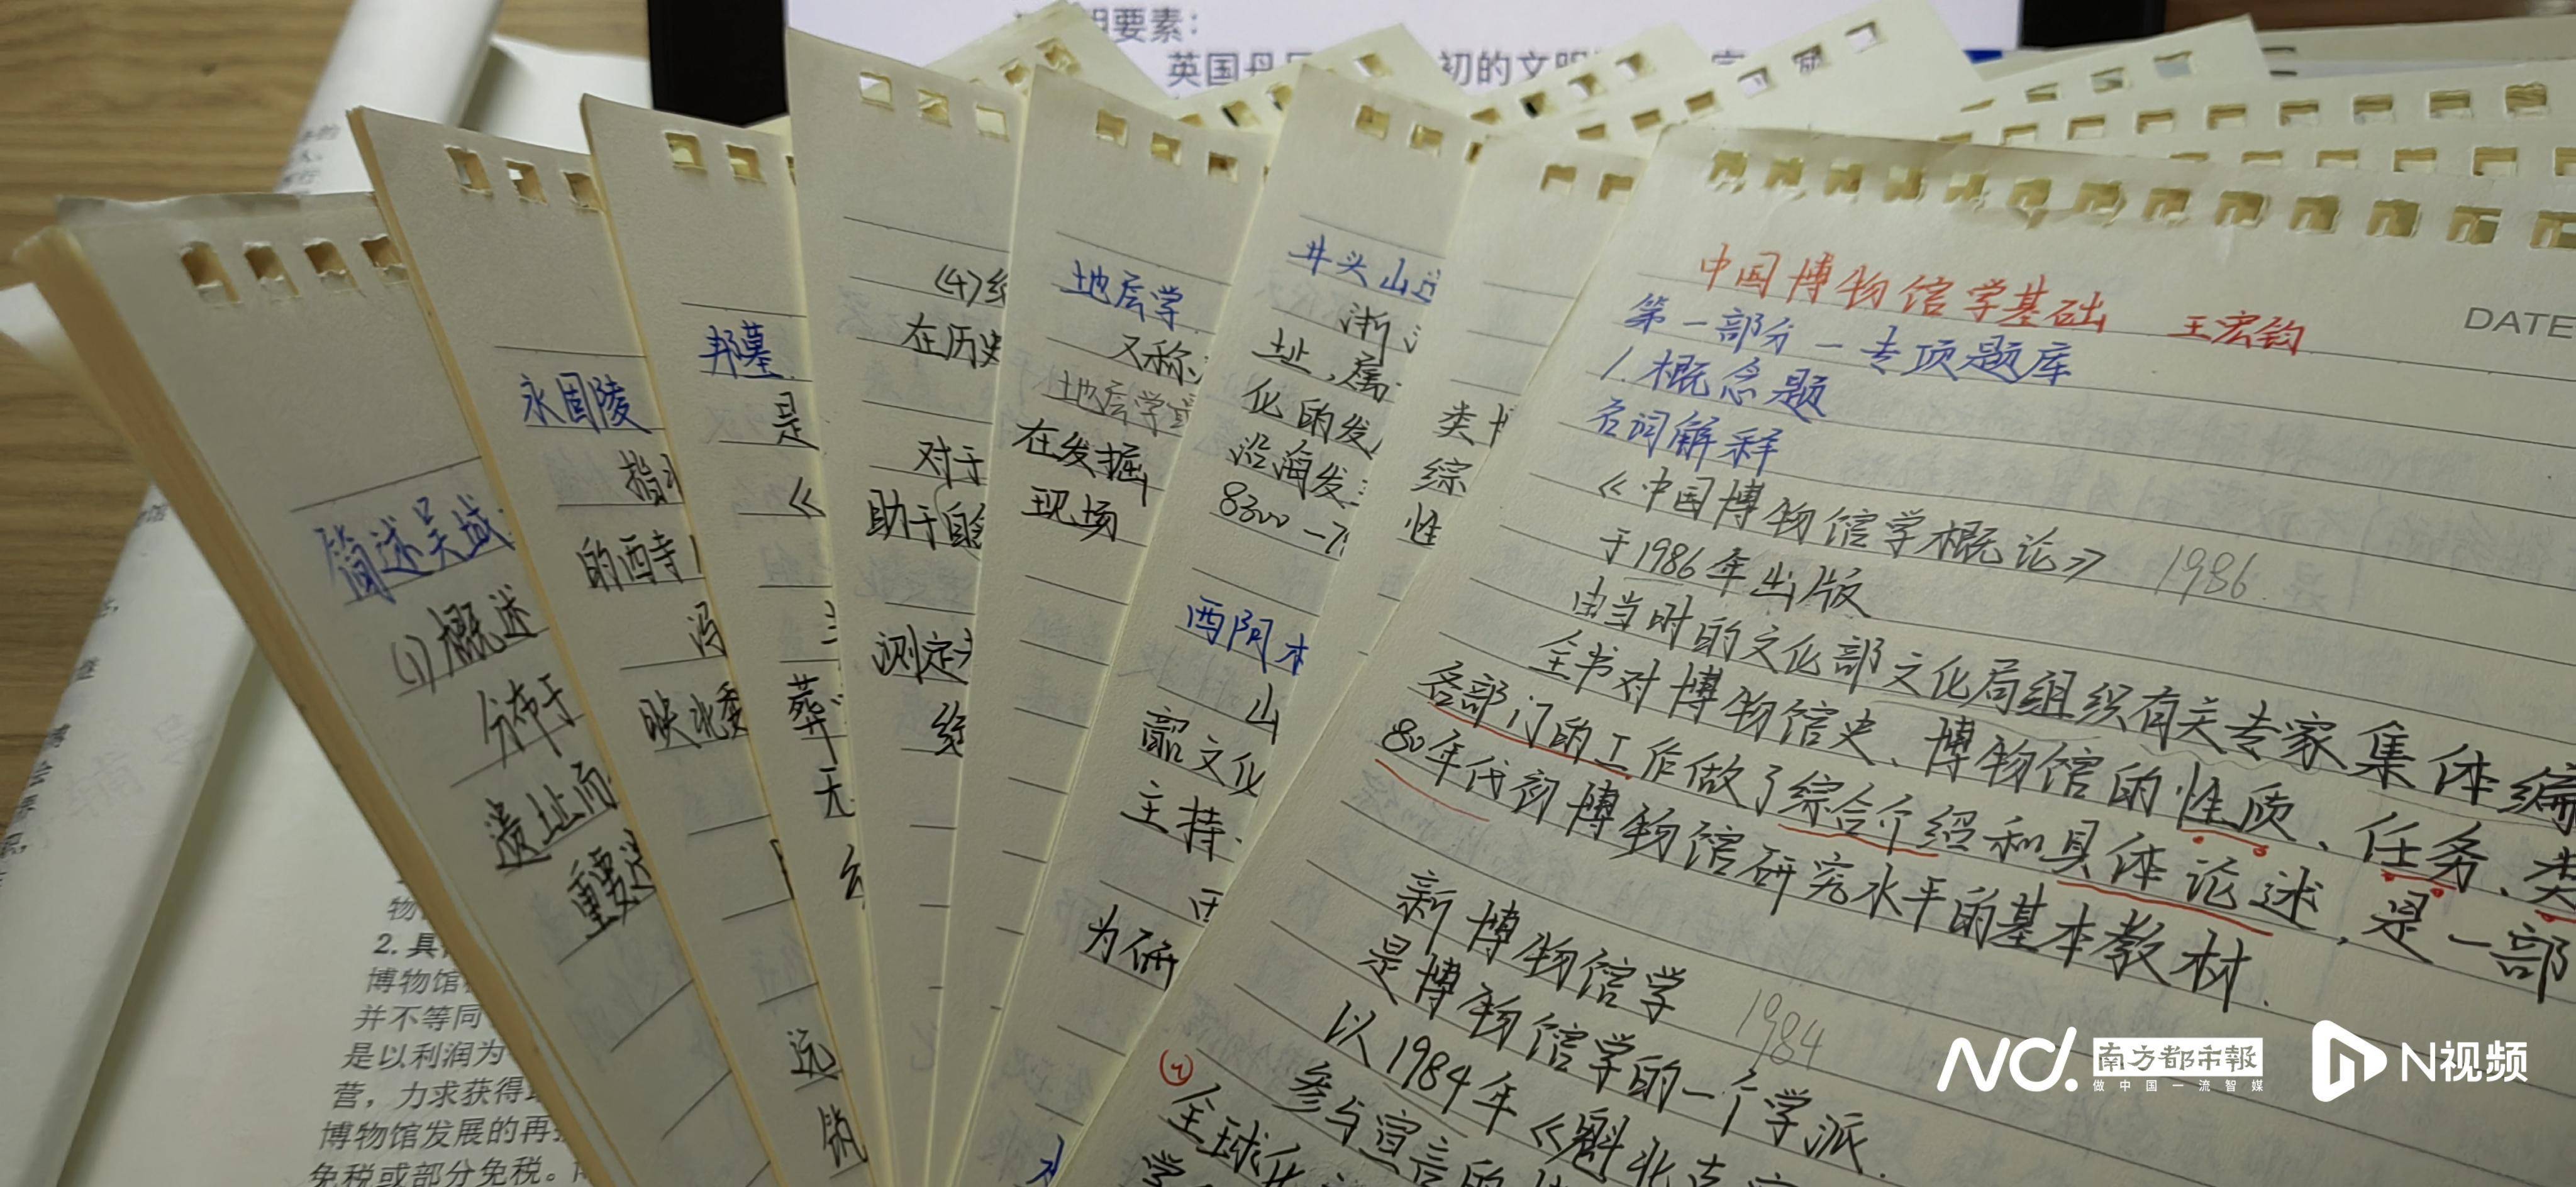 要素：
英国
初的文明
简述吴城
(1)概述
分布于
遗址而
重要
永固陵
指
的西寺
冯
映水
邦墓
是
《
葬
无
远
(4)
在历史
对于
助于自
测定
地层学
又称
地层学
在发掘
现场
井头山
浙
址，属
化的发
沿海发
8300-7
西阴
山
韶文化
主持
为研
类
综
性
中国博物馆学基础 王宏钧
DATE
第一部分－专项题库
1.概念题
名词解释
《中国博物馆学概论》 1986
于1986年出版
由当时的文化部文化局组织有关专家集体编
全书对博物馆史、博物馆的性质、任务、类
各部门的工作做了综合介绍和具体论述，是一部
80年代初博物馆研究水平的基本教材.
新博物馆学 1984
是博物馆学的一个学派.
以1984年《魁北克
参与宣言的
全球
学
2.具
博物馆
并不等同
是以利润为
营，力求获得
博物馆发展的再
免税或部分免税。
南方都市报
做中国一流智媒
N视频